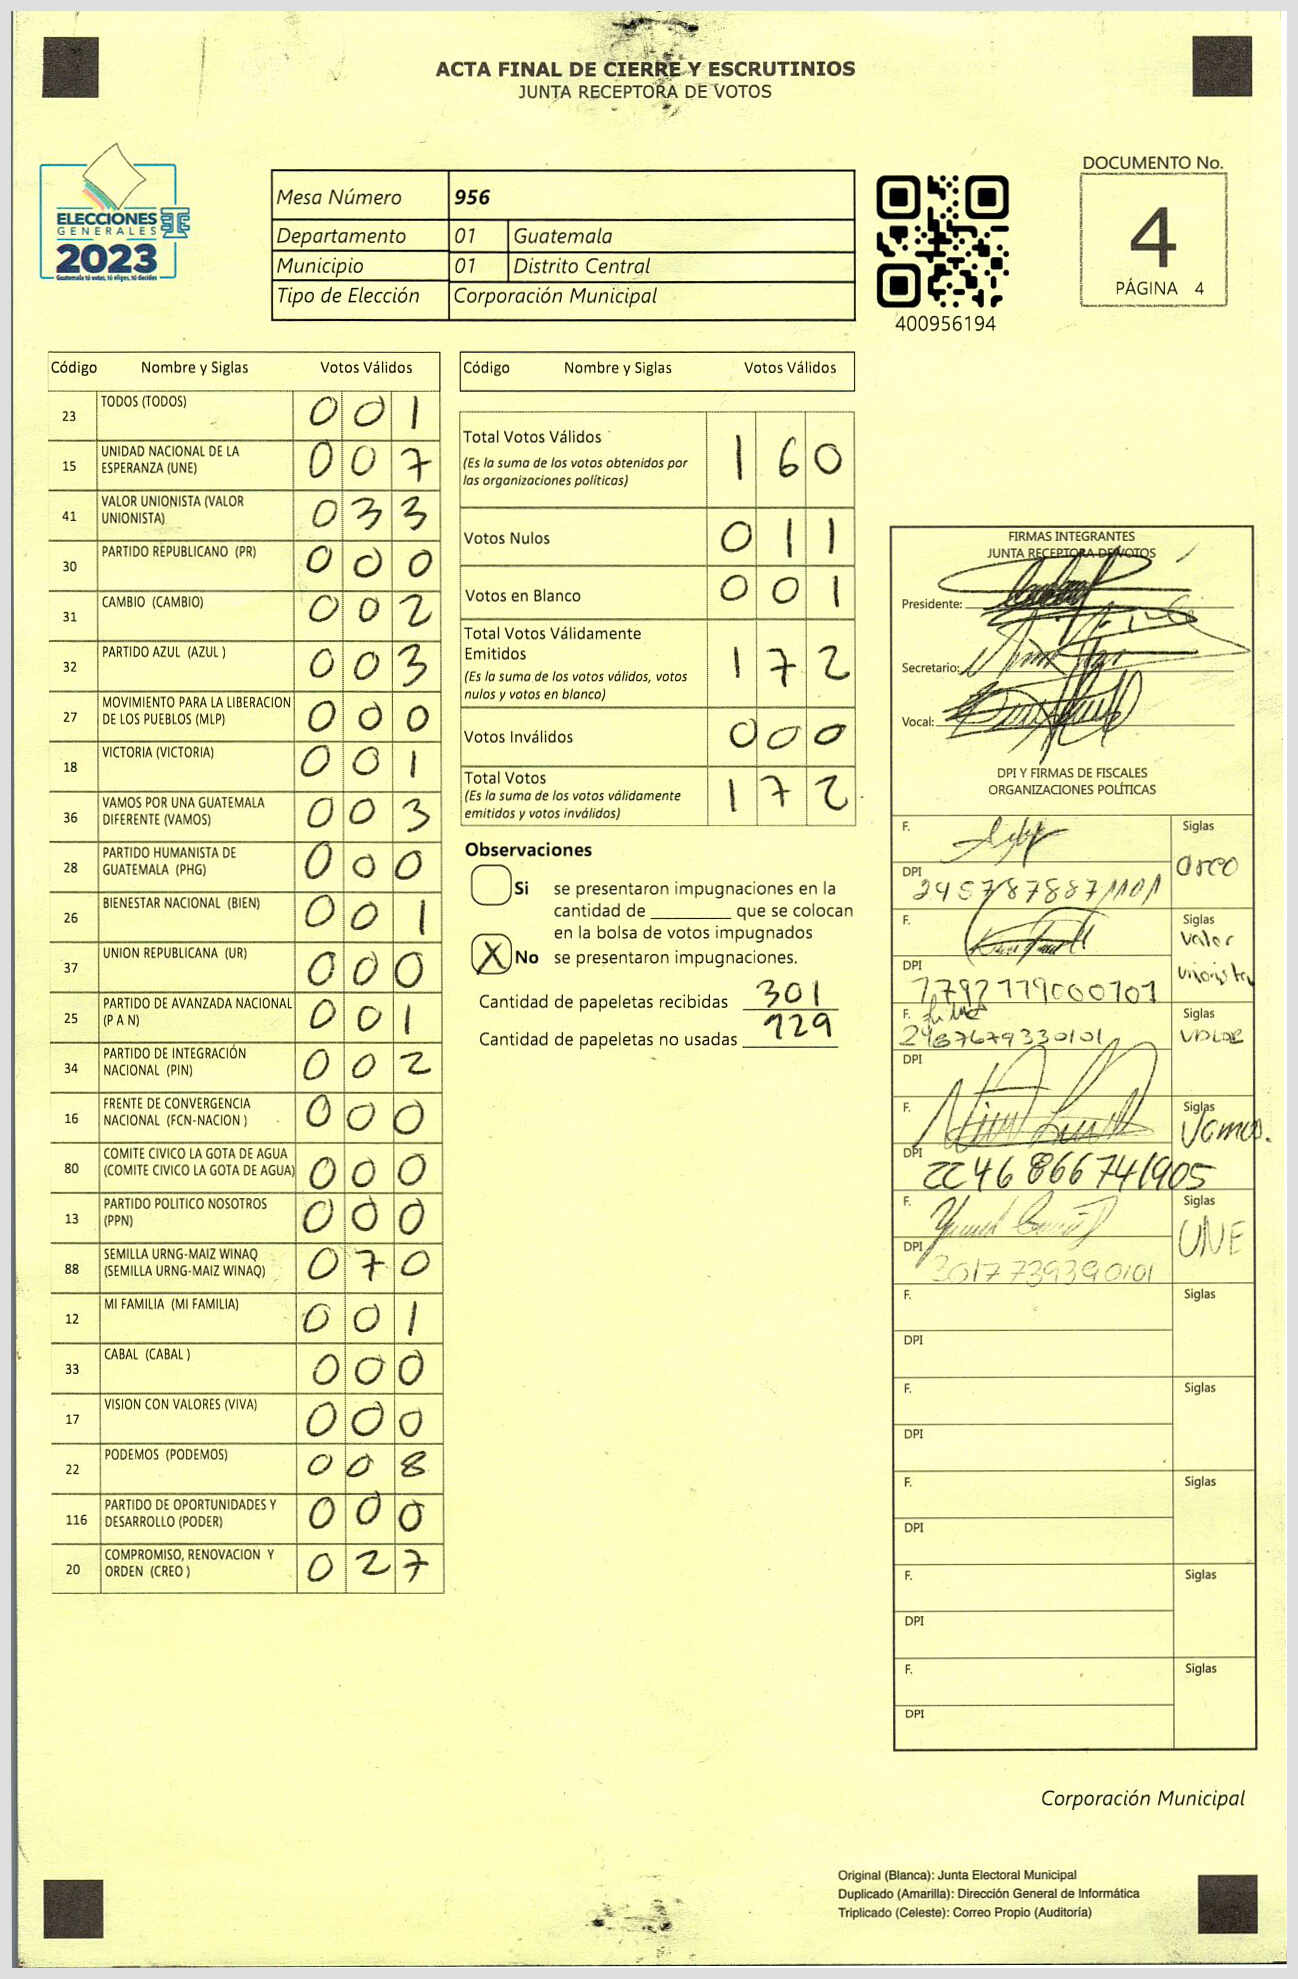 ACTA FINAL DE CIERRE Y ESCRUTINIOS
JUNTA RECEPTORA DE VOTOS
ELECCIONES
GENERALES
2023
Guatemala tú votas, tú eliges, tú decides
Mesa Número 956
Departamento 01 Guatemala
Municipio 01 Distrito Central
Tipo de Elección Corporación Municipal
400956194
DOCUMENTO No.
4
PÁGINA 4
Código Nombre y Siglas Votos Válidos
23 TODOS (TODOS) 0 0 1
15 UNIDAD NACIONAL DE LA ESPERANZA (UNE) 0 0 7
41 VALOR UNIONISTA (VALOR UNIONISTA) 0 3 3
30 PARTIDO REPUBLICANO (PR) 0 0 0
31 CAMBIO (CAMBIO) 0 0 2
32 PARTIDO AZUL (AZUL ) 0 0 3
27 MOVIMIENTO PARA LA LIBERACION DE LOS PUEBLOS (MLP) 0 0 0
18 VICTORIA (VICTORIA) 0 0 1
36 VAMOS POR UNA GUATEMALA DIFERENTE (VAMOS) 0 0 3
28 PARTIDO HUMANISTA DE GUATEMALA (PHG) 0 0 0
26 BIENESTAR NACIONAL (BIEN) 0 0 1
37 UNION REPUBLICANA (UR) 0 0 0
25 PARTIDO DE AVANZADA NACIONAL (P A N) 0 0 1
34 PARTIDO DE INTEGRACIÓN NACIONAL (PIN) 0 0 2
16 FRENTE DE CONVERGENCIA NACIONAL (FCN-NACION ) 0 0 0
80 COMITE CIVICO LA GOTA DE AGUA (COMITE CIVICO LA GOTA DE AGUA) 0 0 0
13 PARTIDO POLITICO NOSOTROS (PPN) 0 0 0
88 SEMILLA URNG-MAIZ WINAQ (SEMILLA URNG-MAIZ WINAQ) 0 7 0
12 MI FAMILIA (MI FAMILIA) 0 0 1
33 CABAL (CABAL ) 0 0 0
17 VISION CON VALORES (VIVA) 0 0 0
22 PODEMOS (PODEMOS) 0 0 8
116 PARTIDO DE OPORTUNIDADES Y DESARROLLO (PODER) 0 0 0
20 COMPROMISO, RENOVACION Y ORDEN (CREO ) 0 2 7
Código Nombre y Siglas Votos Válidos
Total Votos Válidos 1 6 0
(Es la suma de los votos obtenidos por
las organizaciones políticas)
Votos Nulos 0 1 1
Votos en Blanco 0 0 1
Total Votos Válidamente
Emitidos 1 7 2
(Es la suma de los votos válidos, votos
nulos y votos en blanco)
Votos Inválidos 0 0 0
Total Votos 1 7 2
(Es la suma de los votos válidamente
emitidos y votos inválidos)
Observaciones
Si se presentaron impugnaciones en la
cantidad de ________ que se colocan
en la bolsa de votos impugnados
X No se presentaron impugnaciones.
Cantidad de papeletas recibidas 301
Cantidad de papeletas no usadas 129
FIRMAS INTEGRANTES
JUNTA RECEPTORA DE VOTOS
Presidente:
Secretario:
Vocal:
DPI Y FIRMAS DE FISCALES
ORGANIZACIONES POLÍTICAS
F. Siglas
DPI 2457878871101
F. Siglas Valor
DPI 1792779000101 Unionista
F. Siglas
2487679330101 VALOR
DPI
F. Siglas Vamos.
DPI 2246866741905
F. Siglas UNE
DPI 3017739390101
F. Siglas
DPI
F. Siglas
DPI
F. Siglas
DPI
F. Siglas
DPI
F. Siglas
DPI
Corporación Municipal
Original (Blanca): Junta Electoral Municipal
Duplicado (Amarilla): Dirección General de Informática
Triplicado (Celeste): Correo Propio (Auditoría)